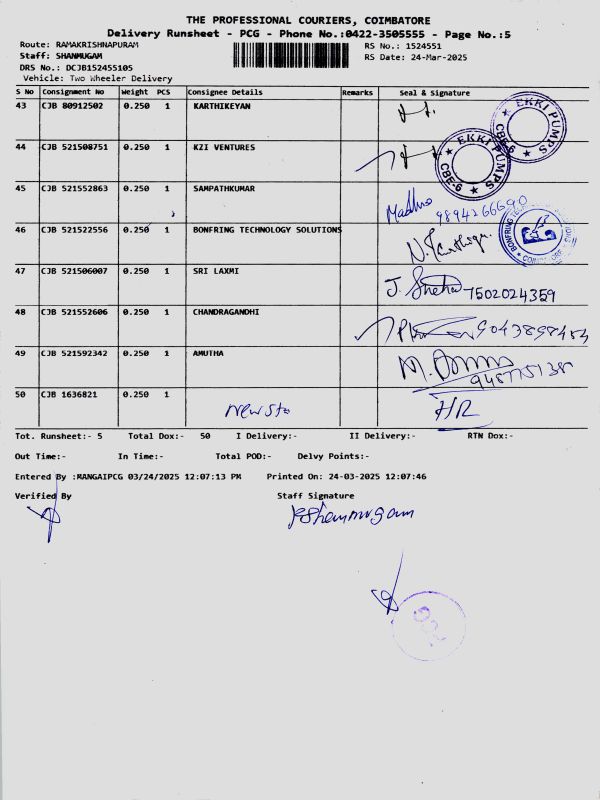 THE PROFESSIONAL COURIERS, COIMBATORE
Delivery Runsheet - PCG - Phone No.:0422-3505555 - Page No.:5
Route: RAMAKRISHNAPURAM
RS No.: 1524551
Staff: SHANMUGAM
RS Date: 24-Mar-2025
DRS No.: DCJB152455105
Vehicle: Two Wheeler Delivery
S No Consignment No Weight PCS Consignee Details Remarks Seal & Signature
43 CJB 80912502 0.250 1 KARTHIKEYAN
EKKI PUMPS CBE-6
44 CJB 521508751 0.250 1 KZI VENTURES
EKKI PUMPS CBE-6
45 CJB 521552863 0.250 1 SAMPATHKUMAR Madhu
9894266690
46 CJB 521522556 0.250 1 BONFRING TECHNOLOGY SOLUTIONS
47 CJB 521506007 0.250 1 SRI LAXMI J. Sneha 7502024359
48 CJB 521552606 0.250 1 CHANDRAGANDHI 9043898454
49 CJB 521592342 0.250 1 AMUTHA
50 CJB 1636821 0.250 1
Tot. Runsheet:- 5 Total Dox:- 50 I Delivery:- II Delivery:- RTN Dox:-
Out Time:- In Time:- Total POD:- Delvy Points:-
Entered By :MANGAIPCG 03/24/2025 12:07:13 PM Printed On: 24-03-2025 12:07:46
Verified By Staff Signature
Shanmugam